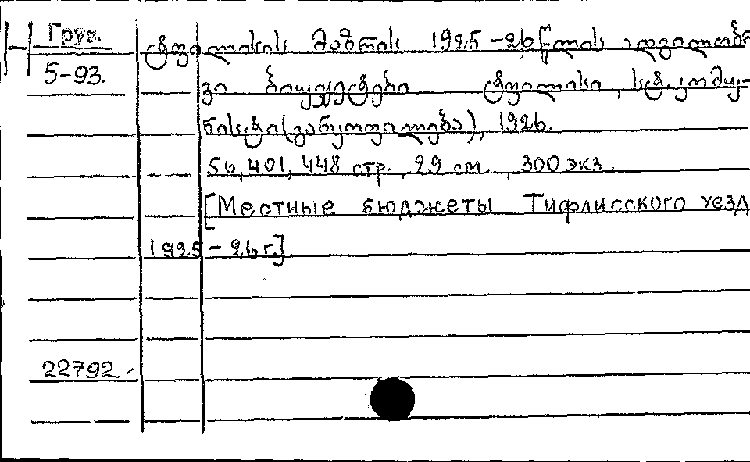 Груз.
5-93.
ტფილისის მაზრის 1925-26 წლის ადგილობრ
ვი ბიუჯეტები ტფილისი, სტ. კომუ-
ნისტი (განყოფილება), 1926.
56, 401, 448 стр., 29 см., 300 экз.
[Местные бюджеты Тифлисского уезд
1925-26 г.]
22792.